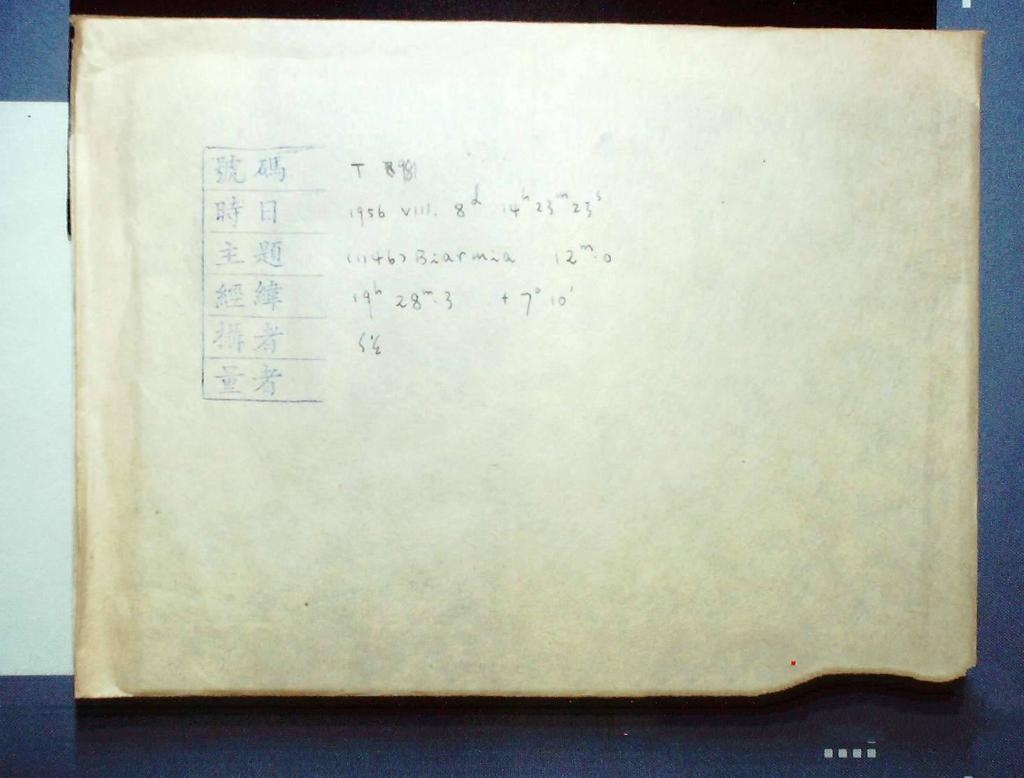 號碼 T 8981
時日 1956 VIII. 8ᵈ 14ʰ 23ᵐ 23ˢ
主題 (1146) Biarmia 12ᵐ.0
經緯 19ʰ 28ᵐ.3 + 7° 10'
攝者
量者